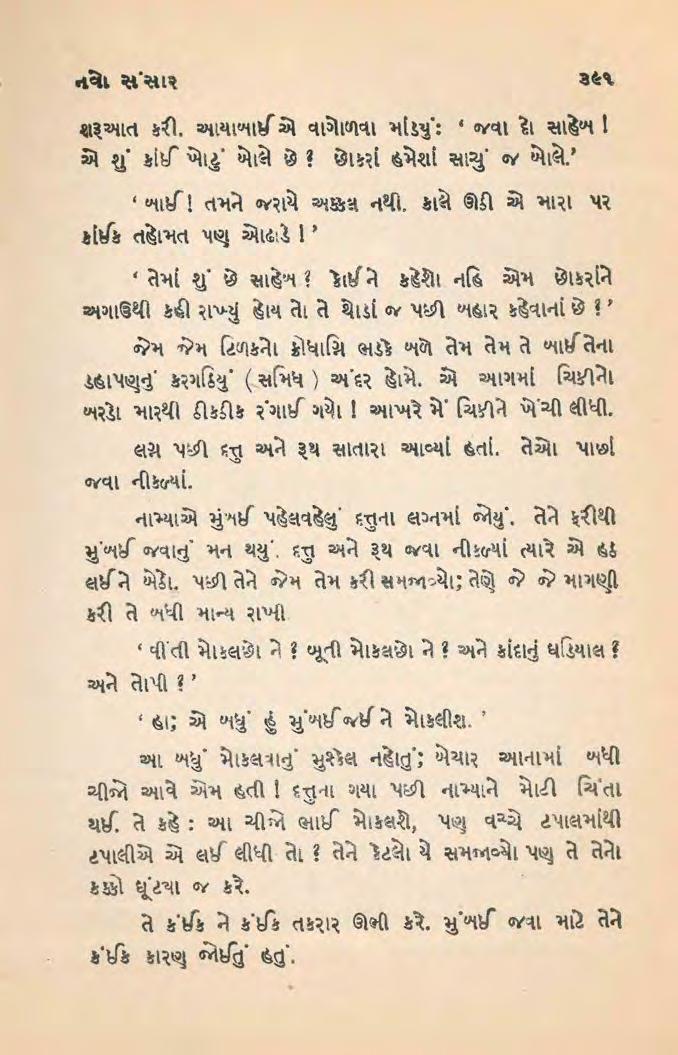 નવો સંસાર ૩૯૧
શરૂઆત કરી. આયાબાઈએ વાગોળવા માંડ્યું: ‘ જવા દો સાહેબ !
એ શું કાંઈ ખોટું બોલે છે ? છોકરાં હમેશાં સાચું જ બોલે.’
‘ બાઈ ! તમને જરાયે અક્કલ નથી. કાલે ઊઠી એ મારા પર
કાંઈક તહોમત પણ ઓઢાડે ! ’
‘ તેમાં શું છે સાહેબ ? કોઈને કહેશો નહિ એમ છોકરાંને
અગાઉથી કહી રાખ્યું હોય તો તે થોડાં જ પછી બહાર કહેવાનાં છે ? ’
જેમ જેમ ટિળકનો ક્રોધાગ્નિ ભડકે બળે તેમ તેમ તે બાઈ તેના
ડહાપણનું કરગઠિયું ( સમિધ ) અંદર હોમે. એ આગમાં ચિકીનો
બરડો મારથી ઠીકઠીક રંગાઈ ગયો ! આખરે મેં ચિકીને ખેંચી લીધી.
લગ્ન પછી દત્તુ અને રૂથ સાતારા આવ્યાં હતાં. તેઓ પાછાં
જવા નીકળ્યાં.
નામ્યાએ મુંબઈ પહેલવહેલું દત્તુના લગ્નમાં જોયું. તેને ફરીથી
મુંબઈ જવાનું મન થયું. દત્તુ અને રૂથ જવા નીકળ્યાં ત્યારે એ હઠ
લઈને બેઠો. પછી તેને જેમ તેમ કરી સમજાવ્યો; તેણે જે જે માગણી
કરી તે બધી માન્ય રાખી
‘ વીંતી મોકલછો ને ? બૂતી મોકલછો ને ? અને કાંદાનું ઘડિયાલ ?
અને તોપી ? ’
‘ હા; એ બધું હું મુંબઈ જઈને મોકલીશ. ’
આ બધું મોકલવાનું મુશ્કેલ નહોતું; બેચાર આનામાં બધી
ચીજો આવે એમ હતી ! દત્તુના ગયા પછી નામ્યાને મોટી ચિંતા
થઈ. તે કહે : આ ચીજો ભાઈ મોકલશે, પણ વચ્ચે ટપાલમાંથી
ટપાલીએ એ લઈ લીધી તો ? તેને કેટલો યે સમજાવ્યો પણ તે તેનો
કક્કો ઘૂંટ્યા જ કરે.
તે કંઈક ને કંઈક તકરાર ઊભી કરે. મુંબઈ જવા માટે તેને
કંઈક કારણ જોઈતું હતું.